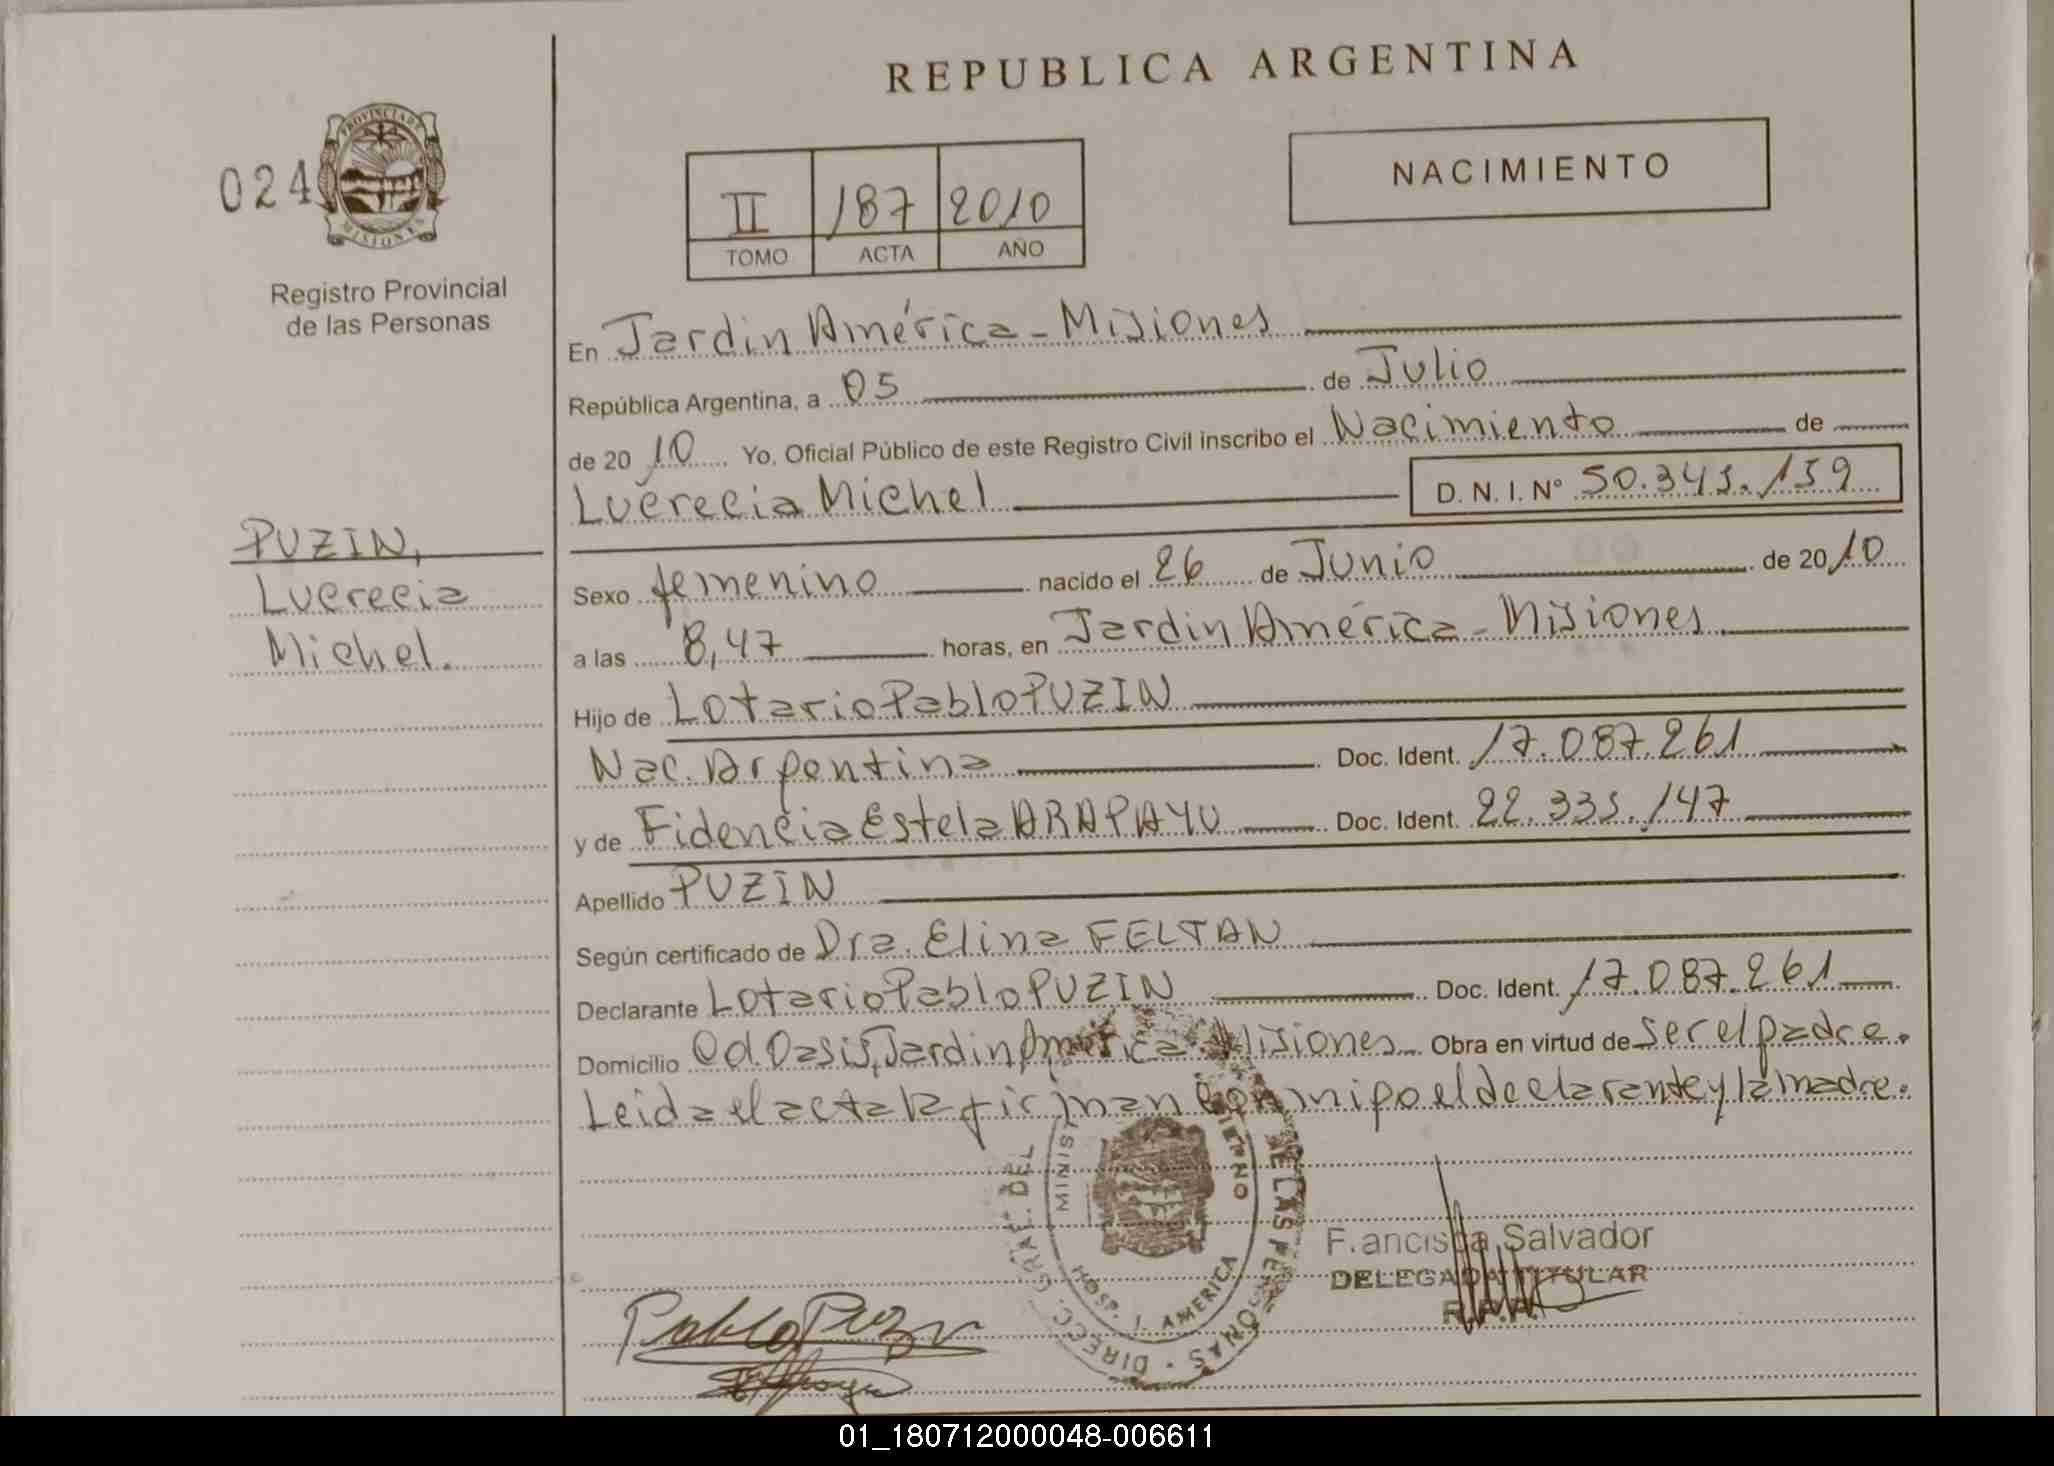 REPUBLICA ARGENTINA
024
PROVINCIA DE
MISIONES
Registro Provincial
de las Personas
NACIMIENTO
II 187 2010
TOMO ACTA AÑO
En Jardin América - Misiones
República Argentina, a 05 de Julio
de 20 10 Yo, Oficial Público de este Registro Civil inscribo el Nacimiento de
Lucrecia Michel D. N. I. Nº 50.343.159
PUZIN,
Lucrecia
Michel.
Sexo femenino nacido el 26 de Junio de 20 10
a las 8,47 horas, en Jardin América - Misiones
Hijo de Lotario Pablo PUZIN
Nac. Argentina Doc. Ident. 17.087.261
y de Fidencia Estela ARAPAYU Doc. Ident. 22.335.147
Apellido PUZIN
Según certificado de Dra. Elina FELTAN
Declarante Lotario Pablo PUZIN Doc. Ident. 17.087.261
Domicilio Cd. Oasis, Jardin América - Misiones Obra en virtud de ser el padre.
Leida el acta la firman conmigo el declarante y la madre.
DIRECC. GRAL. DEL DE LAS PERSONAS
HOSP. J. AMERICA
F.ancisca Salvador
DELEGADA TITULAR
R.P.P.
Pablo Puzin
01_180712000048-006611